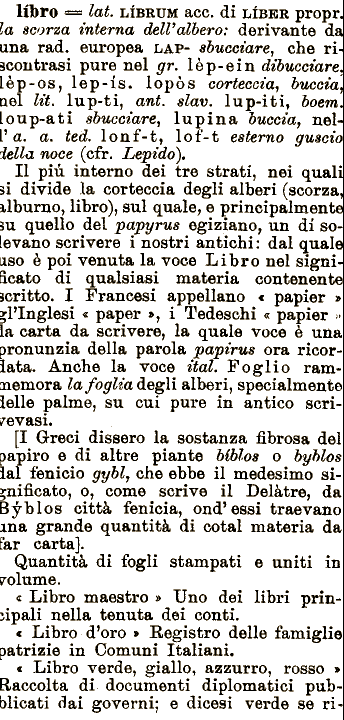 líbro = lat. LÍBRUM acc. di LÍBER propr.
la scorza interna dell'albero: derivante da
una rad. europea LAP- sbucciare, che ri-
scontrasi pure nel gr. lèp-ein dibucciare,
lèp-os, lep-ís. lopòs corteccia, buccia,
nel lit. lup-ti, ant. slav. lup-iti, boem.
loup-ati sbucciare, lupina buccia, nel-
l'a. a. ted. lonf-t, lof-t esterno guscio
della noce (cfr. Lepido).
Il piú interno dei tre stratí, nei quali
si divide la corteccia degli alberi (scorza,
alburno, libro), sul quale, e principalmente
su quello del papyrus egiziano, un dí so-
levano scrivere i nostri antichi: dal quale
uso è poi venuta la voce Libro nel signi-
ficato di qualsiasi materia contenente
scritto. I Francesi appellano « papier »
gl'Inglesi « paper », i Tedeschi « papier »
la carta da scrivere, la quale voce è una
pronunzia della parola papirus ora ricor-
data. Anche la voce ital. Foglio ram-
memora la foglia degli alberi, specialmente
delle palme, su cui pure in antico scri-
vevasi.
[I Greci dissero la sostanza fibrosa del
papiro e di altre piante bíblos o byblos
dal fenicio gybl, che ebbe il medesimo si-
gnificato, o, come scrive il Delàtre, da
Bỳblos città fenicia, ond'essi traevano
una grande quantità di cotal materia da
far carta].
Quantità di fogli stampati e uniti in
volume.
« Libro maestro » Uno dei libri prin-
cipali nella tenuta dei conti.
« Libro d'oro » Registro delle famiglie
patrizie in Comuni Italiani.
« Libro verde, giallo, azzurro, rosso »
Raccolta di documenti diplomatici pub-
blicati dai governi; e dicesi verde se ri-